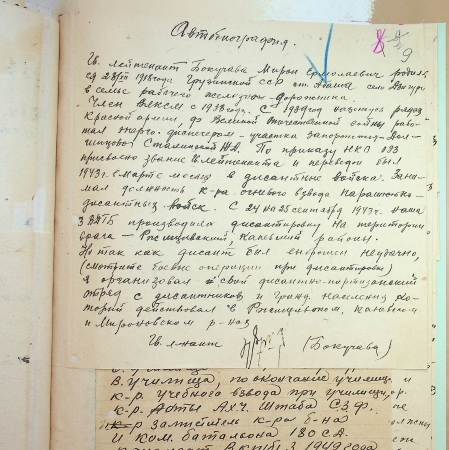 Автобиография.
8 9
9
Гв. лейтенант Бокучава Мирон Ермолаевич родил
ся 1918 года Грузинской ССР ст. сел.
в семье рабочего железнодорожника.
Член ВЛКСМ с 1938 году. С 1939 год нахожусь рядах
Красной армии, до Великой Отечественной войны рабо
тал диспетчером участка Запорожье-Дол-
гинцово Сталинской ж.д. По приказу НКО 193
присвоено звание лейтенанта и переведен был
1943 г. в марте месяц в десантные войска. Зани-
мал должность к-ра огневого взвода парашютно-
десантных войск. С 24 на 25 сентября 1943 г. наша
3 ВДГБ производила десантировку на территории
врага - Ржищевский, Каневский районы.
Но так как десант был выброшен неудачно,
(смотрите боевые операции при десантировки)
я организовал свой десантно-партизанский
отряд с десантников и гражд. население ко-
торый действовал в Ржищевском, Каневском
и Мироновском р-нах
Гв. л-нант (Бокучава)
В. училища, по окончание училища и
к-р. учебного взвода при училищ.
к-р. роты А.Х.Ч. Штаба С.З.Ф.
к-р заместитель к-ра б-на
и ком. батальона 180 с.д.
1949 года